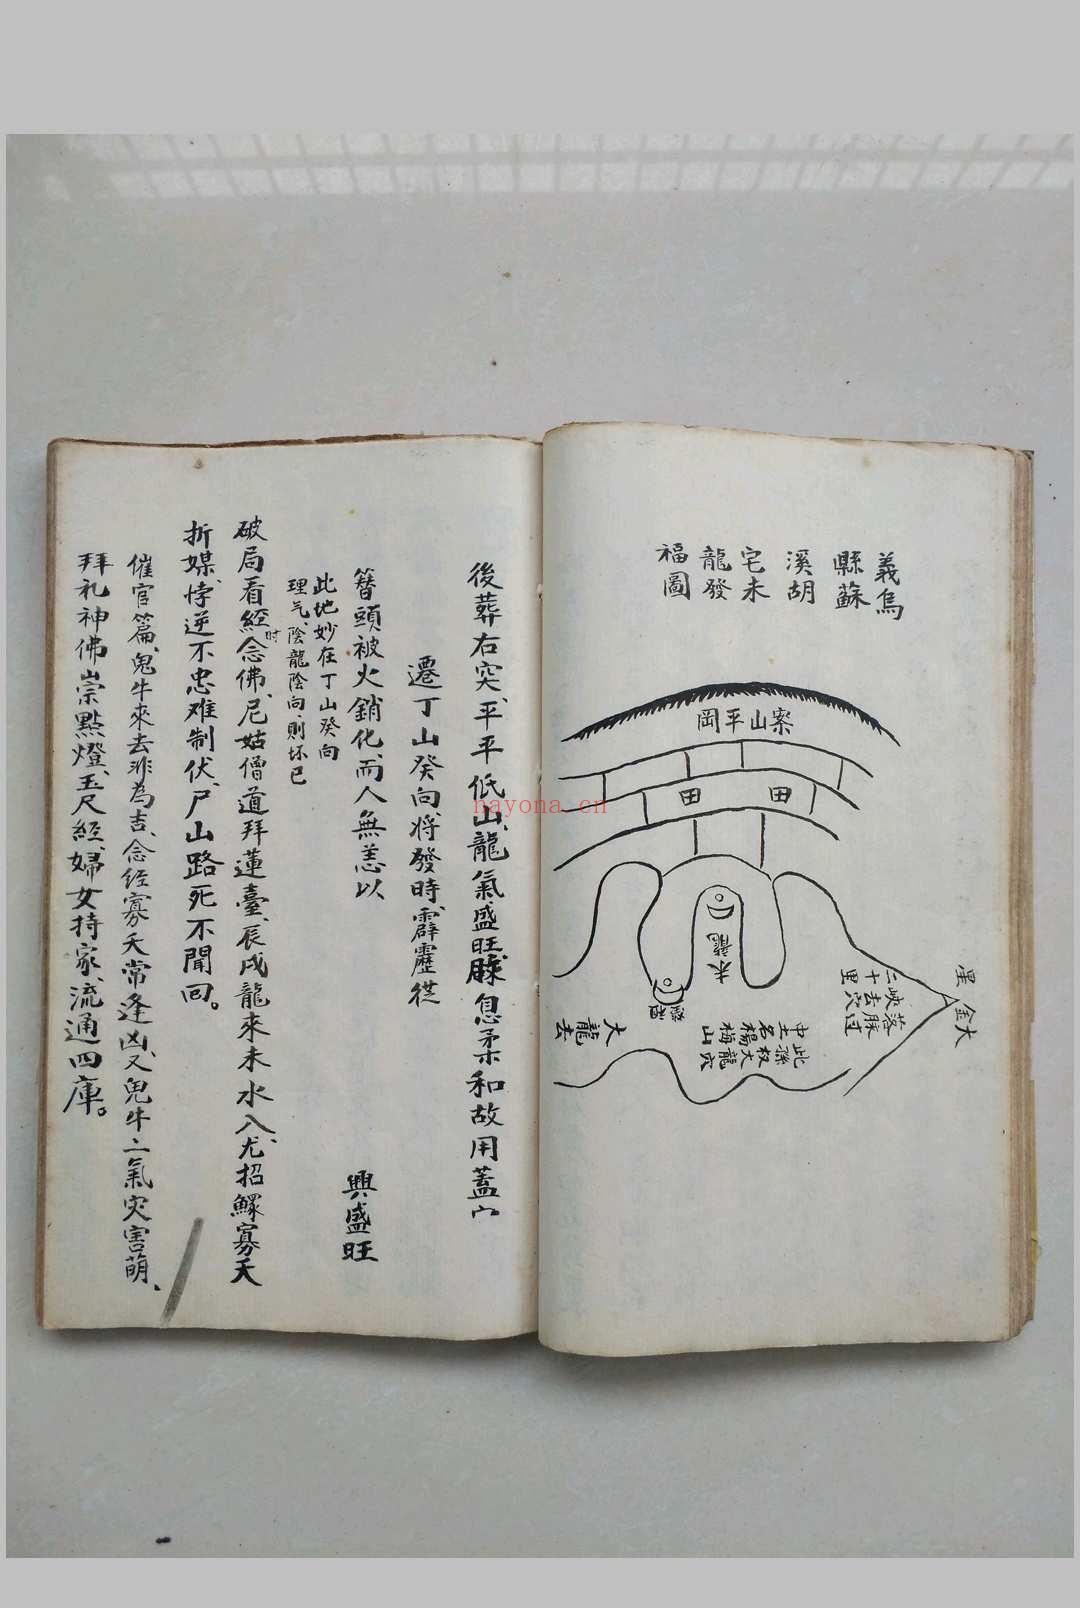 義烏
縣蘇
溪胡
宅未
龍發
福圖
案山平岡
田 田
未龍
大金
星
落脉過
峽去穴
二十里
此龍穴
孫大
权梅山
名楊
中土
大龍去
後葬右突、平平低山、龍氣盛旺、脲息柔和故用蓋穴
遷丁山癸向、將發時、霹靂從
簪頭被火銷化、而人無恙以
興盛旺
此地妙在丁山癸向
理气、陰龍陰向、則坏已
破局看經时念佛、尼姑僧道拜蓮臺、辰戌龍來未水入、尤招鰥寡夭
折媒、悖逆不忠难制伏、尸山路死不聞回。
催官篇、鬼牛來去非為吉、念经寡夭常逢凶、又鬼牛二氣灾害萌、
拜礼神佛崇點燈、玉尺經、婦女持家、流通四庫。
nayona.cn